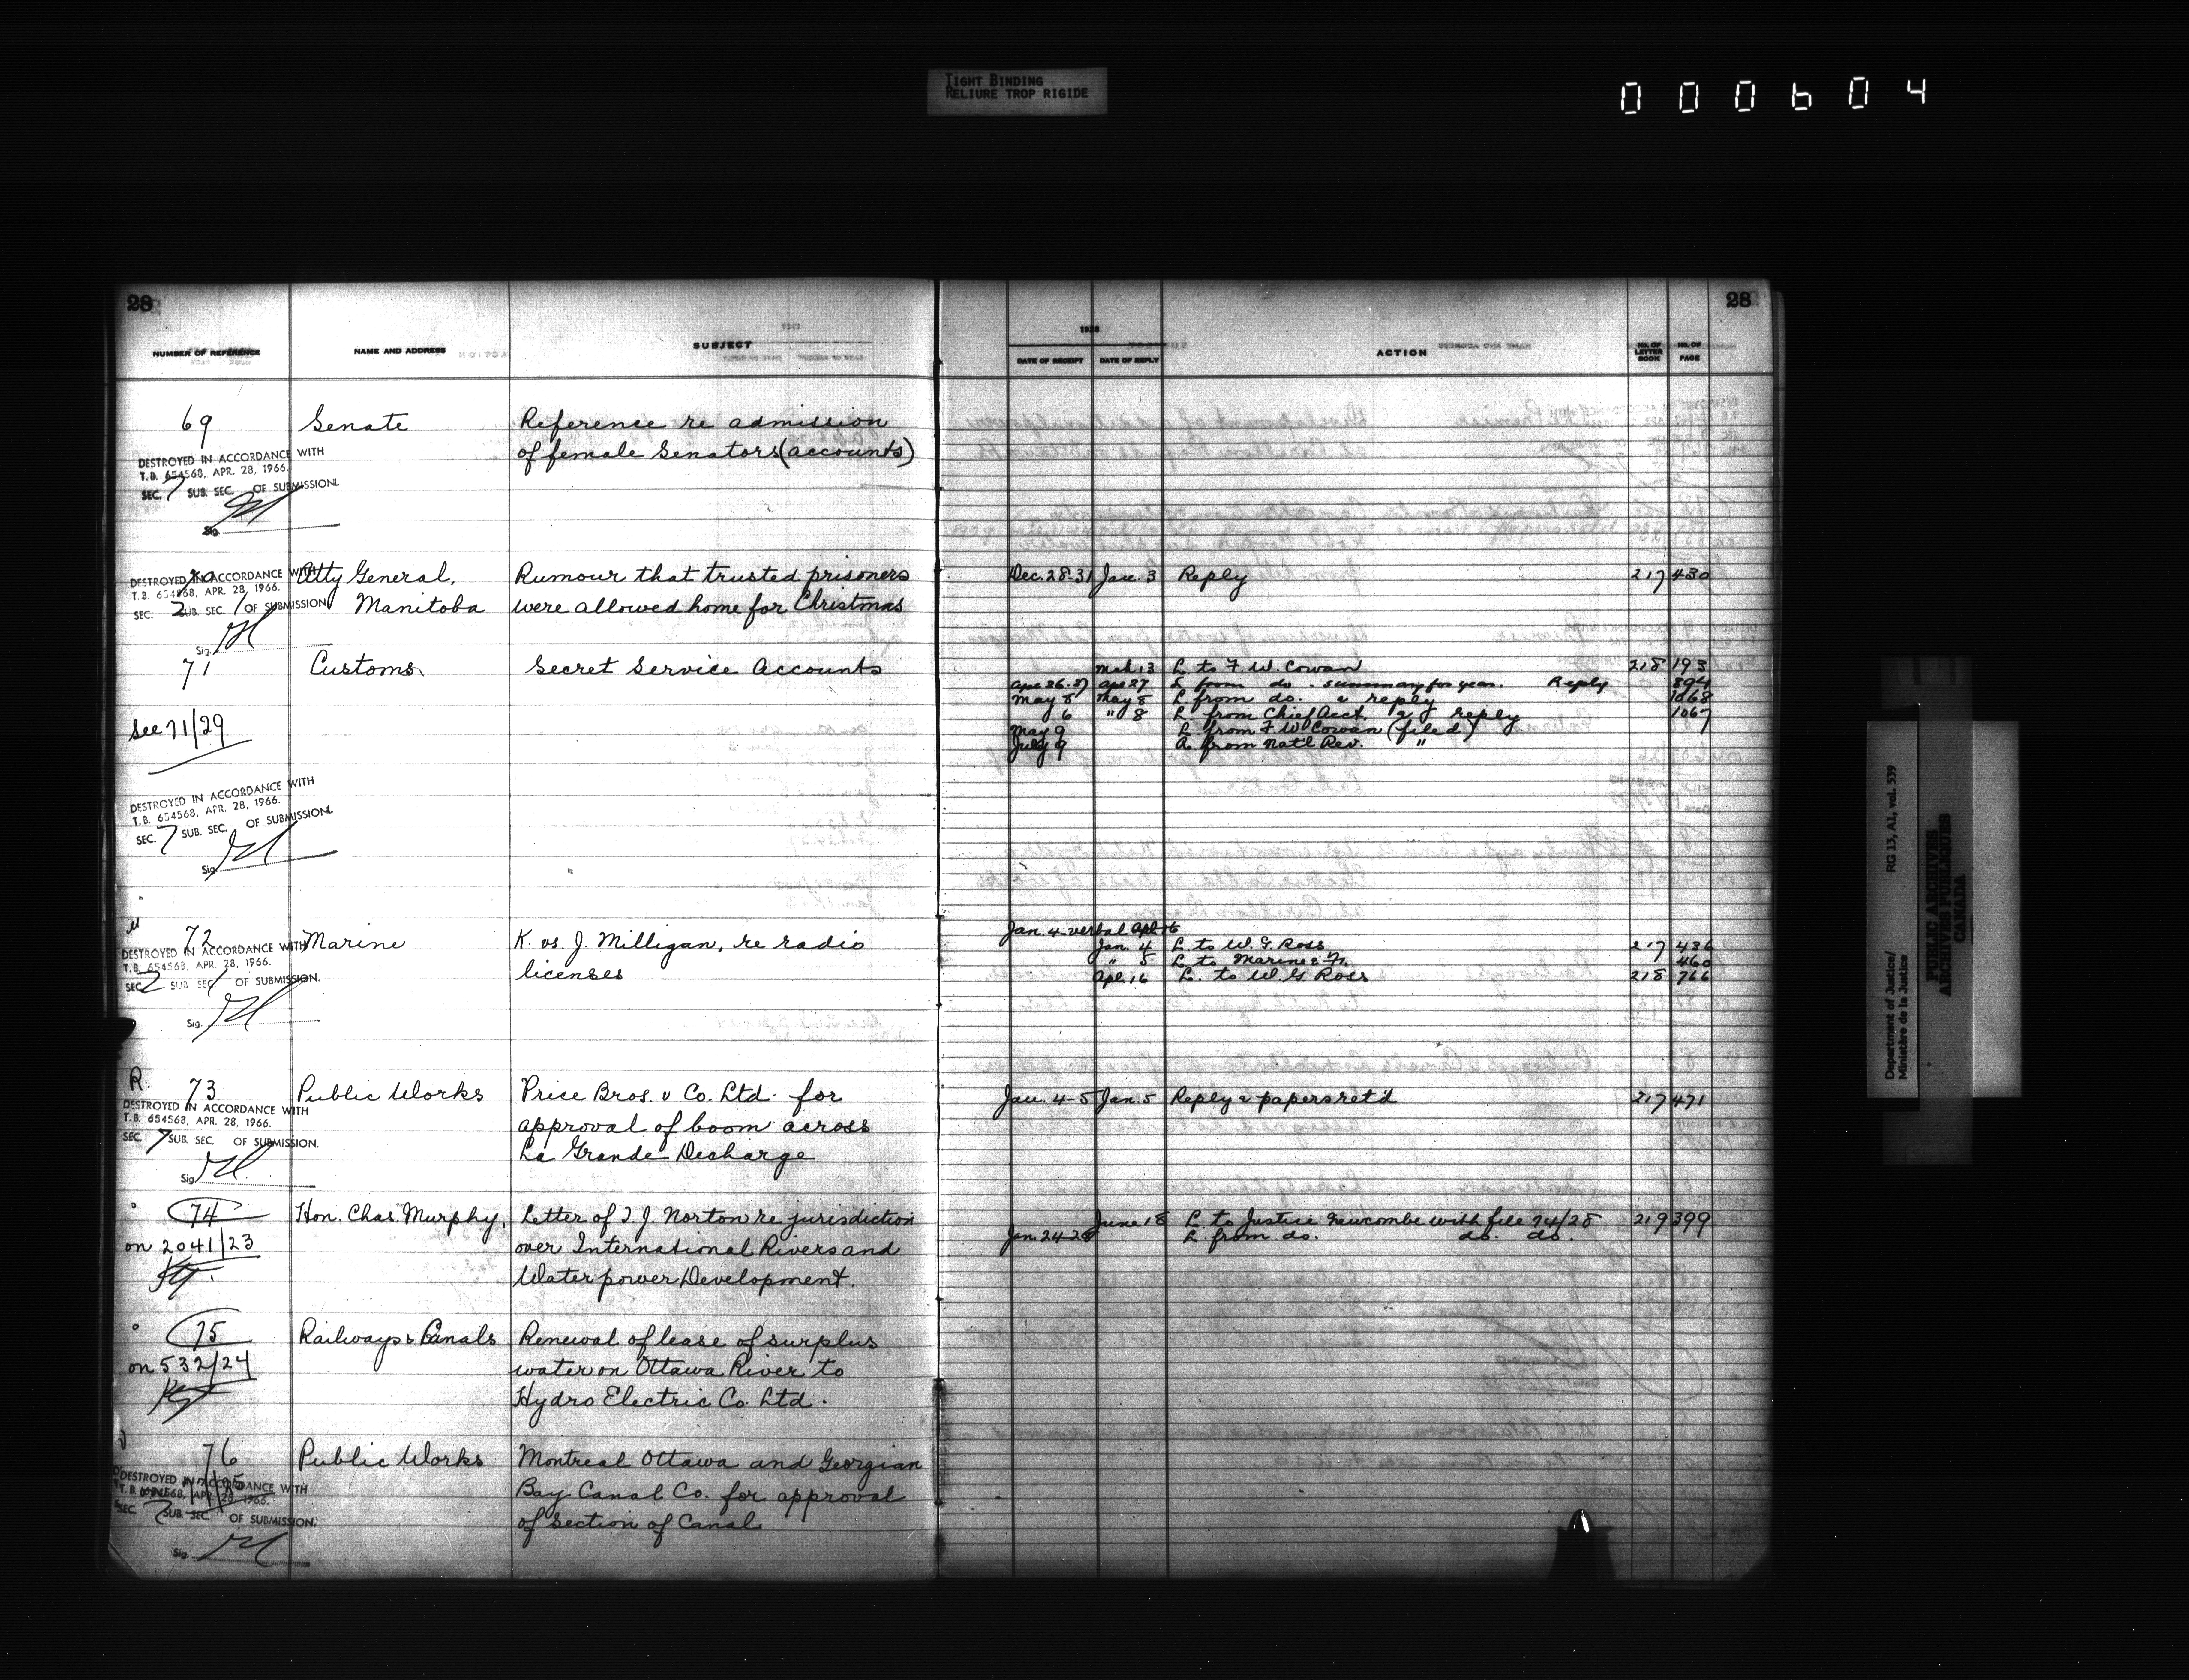 TIGHT BINDING
RELIURE TROP RIGIDE
000604
28
NUMBER OF REFERENCE NAME AND ADDRESS SUBJECT
69 Senate Reference re admission
of female Senators (accounts)
DESTROYED IN ACCORDANCE WITH
T.B. 654568, APR. 28, 1966.
SEC. 7 SUB. SEC. OF SUBMISSION.
Sig.
70 Atty General, Rumour that trusted prisoners
Manitoba were allowed home for Christmas
DESTROYED IN ACCORDANCE WITH
T.B. 654568, APR. 28, 1966.
SEC. 2 SUB. SEC. 1 OF SUBMISSION
Sig.
71 Customs Secret Service Accounts
See 71/29
DESTROYED IN ACCORDANCE WITH
T.B. 654568, APR. 28, 1966.
SEC. 7 SUB. SEC. OF SUBMISSION.
Sig.
72 Marine K. vs. J. Milligan, re radio
licenses
DESTROYED IN ACCORDANCE WITH
T.B. 654568, APR. 28, 1966.
SEC. 2 SUB SEC. 1 OF SUBMISSION.
Sig.
R. 73 Public Works Price Bros. v Co. Ltd. for
approval of boom across
La Grande Decharge
DESTROYED IN ACCORDANCE WITH
T.B. 654568, APR. 28, 1966.
SEC. 7 SUB. SEC. OF SUBMISSION.
Sig.
74 Hon. Chas. Murphy, Letter of T. J. Norton re jurisdiction
on 2041/23 over International Rivers and
Water power Development.
75 Railways & Canals Renewal of lease of surplus
on 532/24 water on Ottawa River to
Hydro Electric Co. Ltd.
76 Public Works Montreal Ottawa and Georgian
Bay Canal Co. for approval
of section of Canal
DESTROYED IN ACCORDANCE WITH
T.B. 654568, APR. 28, 1966.
SEC. 7 SUB. SEC. OF SUBMISSION.
Sig.
28
1928
DATE OF RECEIPT DATE OF REPLY ACTION No. OF LETTER BOOK No. OF PAGE
Dec. 28-31 Jan. 3 Reply 217 430
Mch 13 L to F. W. Cowan 218 193
Apr 26-27 Apr 27 L from do. summary for year. Reply 894
May 8 May 8 L from do. & reply 1068
6 " 8 L from Chief Acct. & reply 1067
May 9 L from F W Cowan (filed)
July 9 A. from Nat'l Rev. "
Jan. 4-verbal Apl. 16
Jan. 4 L to W. G. Ross 217 436
" 5 L to Marine & F. 460
Apl. 16 L. to W. G Ross 218 766
Jan. 4-5 Jan. 5 Reply & papers ret'd 217 471
June 18 L to Justice Newcombe with file 74/28 219 399
Jan 24-28 L. from do. do. do.
Department of Justice/
Ministère de la Justice
RG 13, A1, vol. 539
PUBLIC ARCHIVES
ARCHIVES PUBLIQUES
CANADA